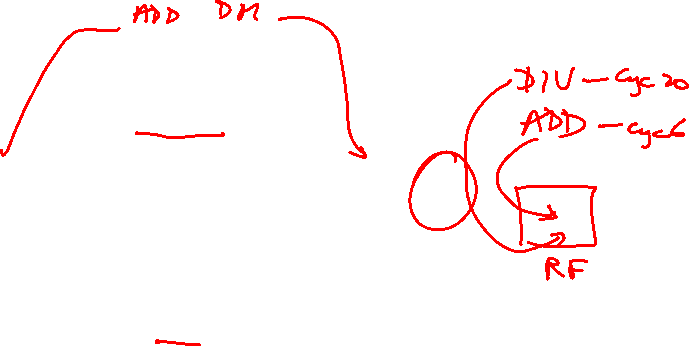 ADD DM
DIV - Cyc 20
ADD - Cyc 6
RF